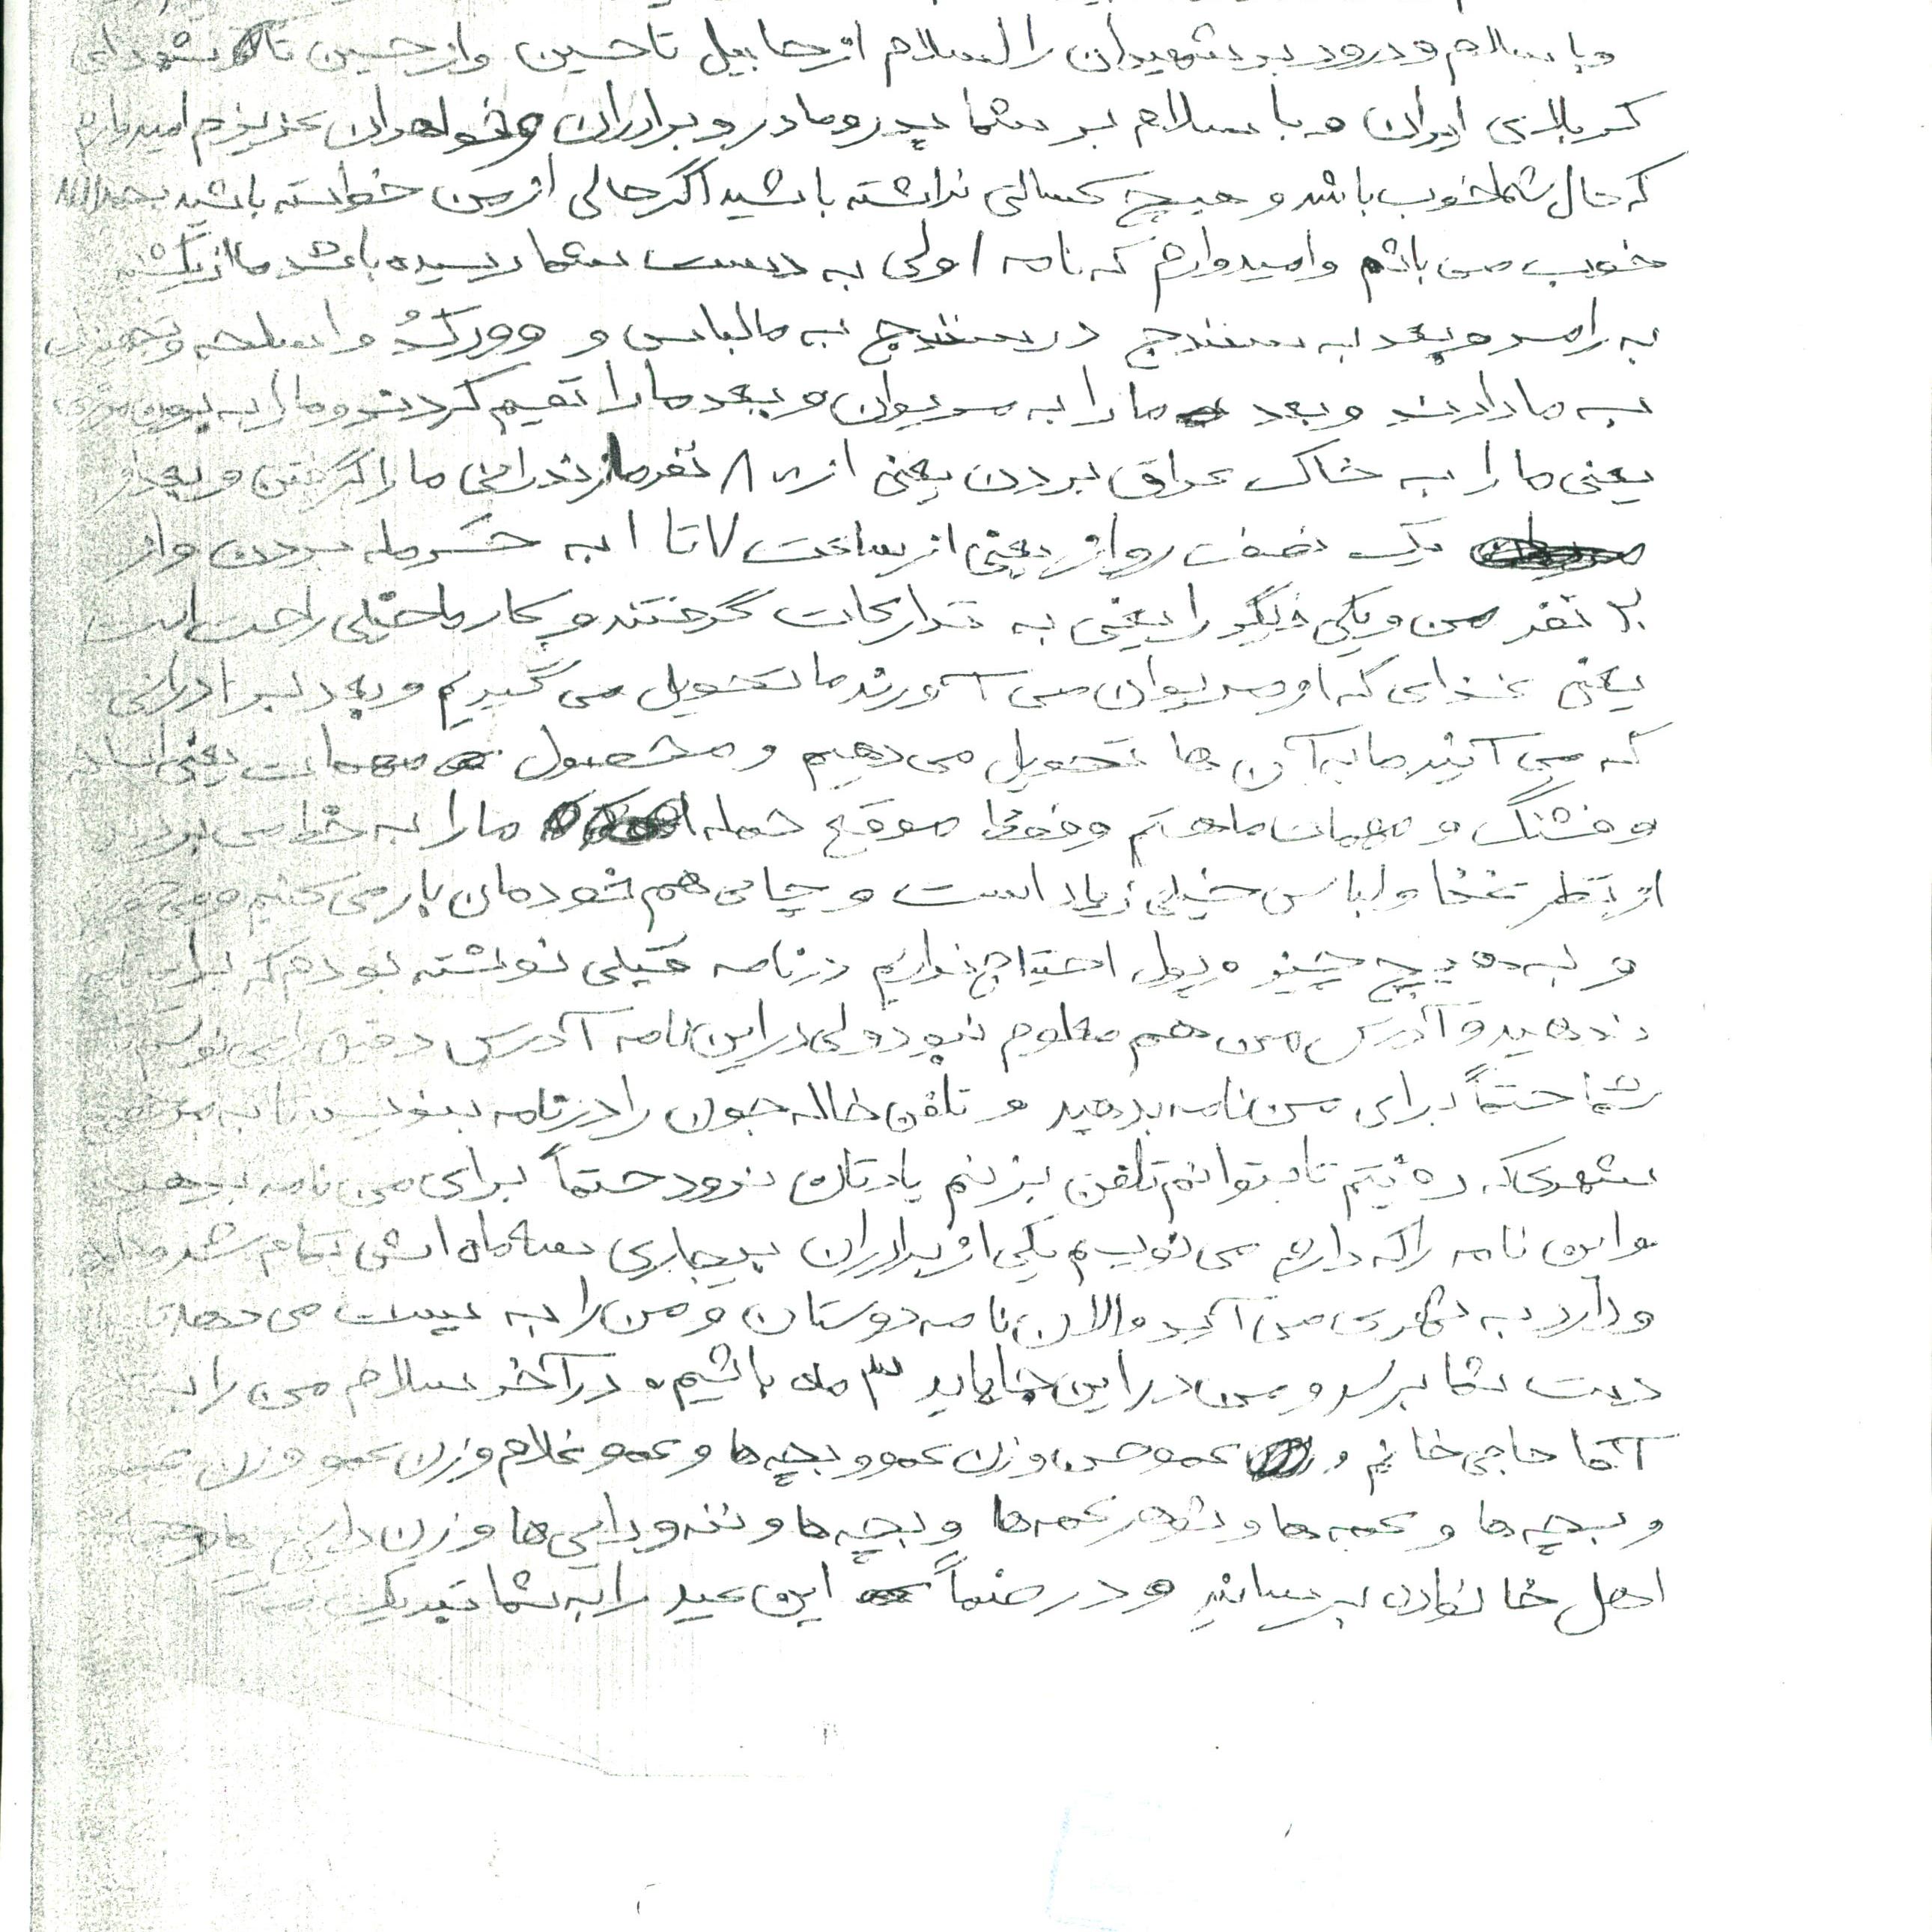 و با سلام و درود بر شهیدان راالسلام از حابیل تا حسین و از حسین تا شهدای
کربلای ایران و با سلام بر شما پدر و مادر و برادران و خواهران عزیزم امیدوارم
که حال شما خوب باشد و هیچ کسالتی نداشته باشید اگر حالی از من خواسته باشید بحمدالله
خوب می باشم و امیدوارم که نامه اولی به دست شما رسیده باشد ما از
به رامسر و بعد به سنندج در سنندج به ما لباس و و اسلحه و تجهیزات
به ما دادند و بعد ما را به مریوان و بعد ما را تقیم کردند و ما را به
یعنی ما را به خاک عراق بردن یعنی از ۸ نفر مازندرانی ما را گرفتن و بعد از
یک نصف روز یعنی از ساعت ۷ تا ۱ به بردن و از
۲ نفر من و یکی دیگر را یعنی به تدارکات گرفتند و کار ما خیلی راحت است
یعنی غذای که از مریوان می آورند ما تحویل می گیریم و به برادرانی
که می آیند ما به آن ها تحویل می دهیم و مسئول مهمات یعنی
و فشنگ و مهمات ما هستیم و فقط موقع حمله ما را به خط می برند
از نظر غذا و لباس خیلی زیاد است و چای هم خودمان بار می کنیم
و به هیچ چیز و پول احتیاج نداریم در نامه قبلی نوشته بودم که برای نامه
ندهید و آدرس من هم معلوم نبود ولی در این نامه آدرس دقیق را می نویسم
شما حتماً برای من نامه بدهید و تلفن خاله جون را در نامه بنویسید تا به
شهری که رفتیم تا بتوانم تلفن بزنم یادتان نرود حتماً برای من نامه بدهید
و این نامه را که دارم می نویسم یکی از برادران سه ماه اش تمام شد
و دارد به شهری می آید و الان نامه دوستان و من را به می دهد تا
دست شما برسد و من در این جا باید ۳ ماه باشیم. در آخر سلام من را به
آقا حاجی خانم و عمو حسن و زن عمو و بچه ها و عمو غلام و زن عمو و زن
و بچه ها و عمه ها و شوهر عمه ها و بچه ها و ننه و دایی ها و زن دایی ها
اهل خانواده برسانید و در ضمناً این عید را به شما تبریک